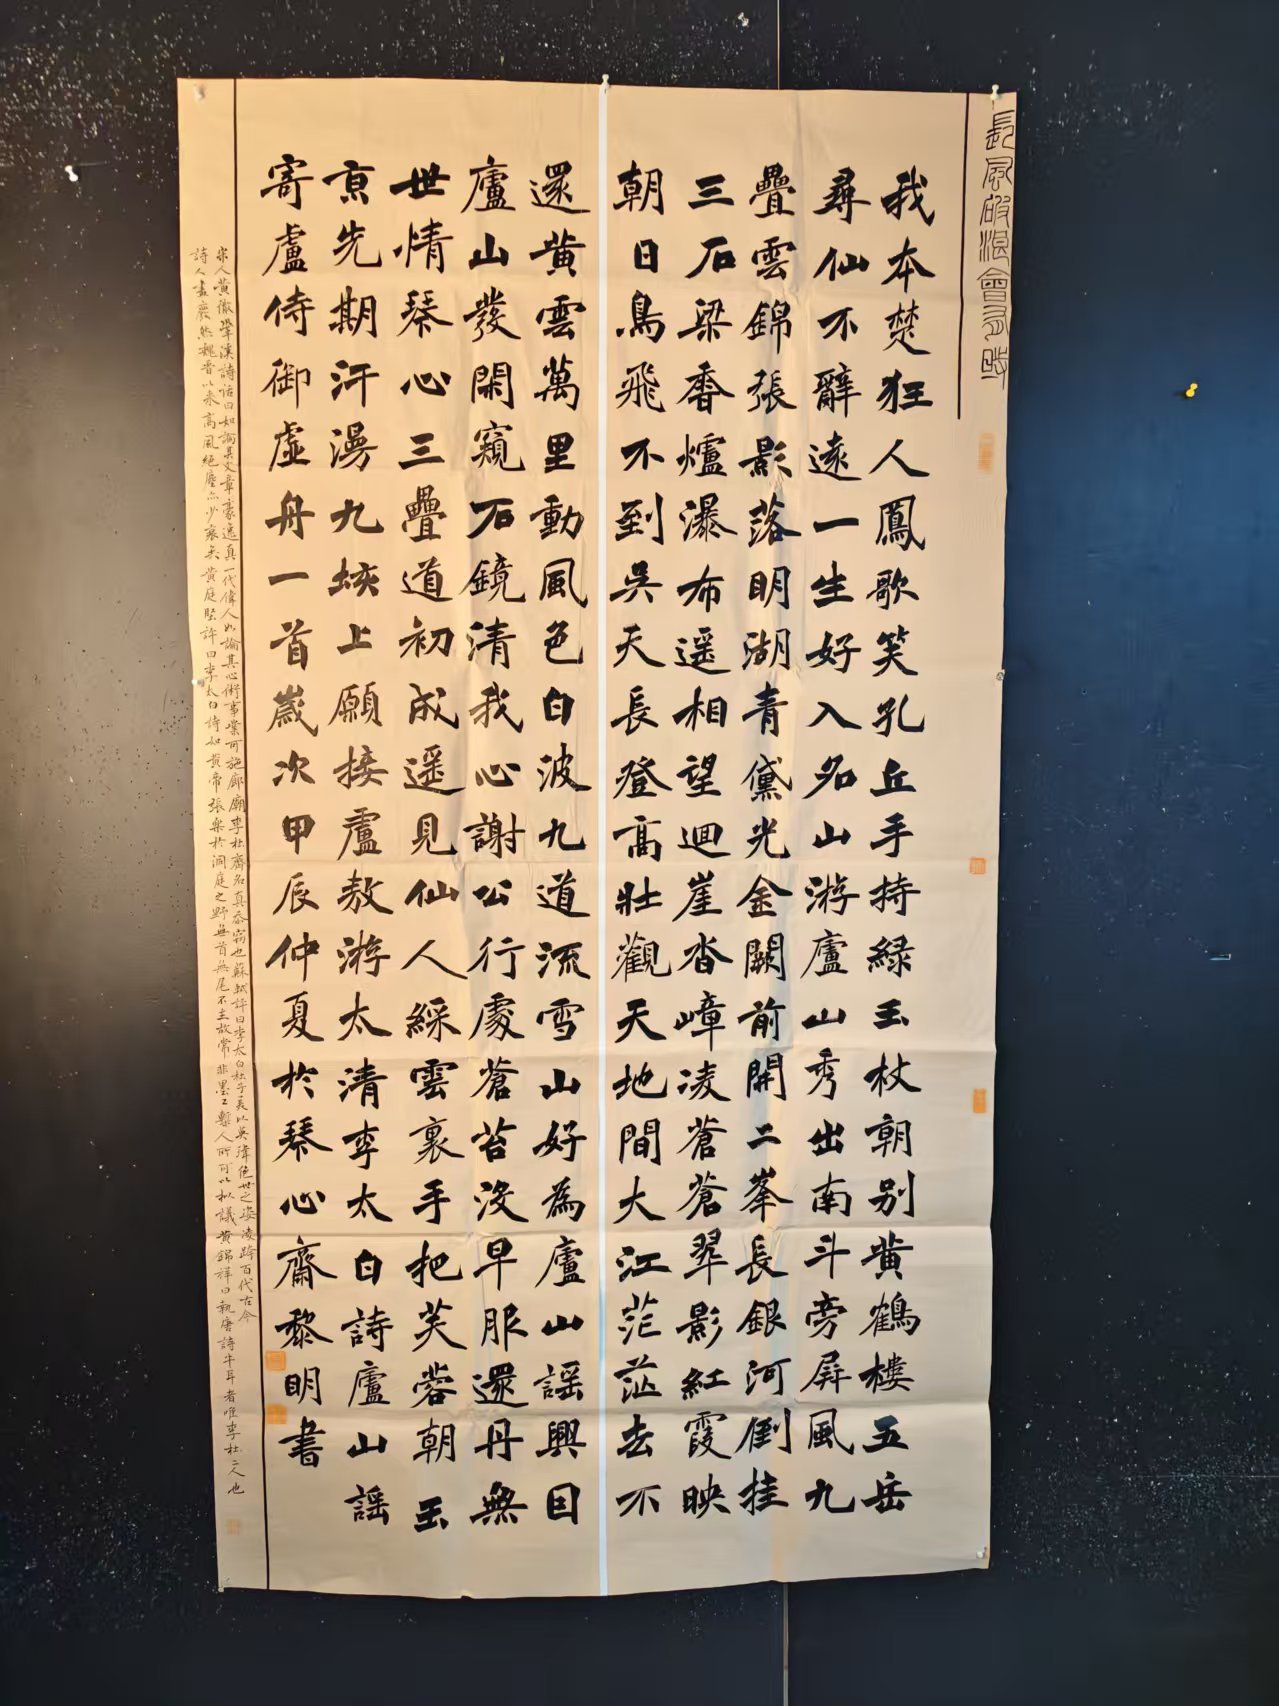 長風破浪會有時
我本楚狂人鳳歌笑孔丘手持緑玉杖朝別黄鶴樓五岳
尋仙不辭遠一生好入名山游廬山秀出南斗旁屏風九
疊雲錦張影落明湖青黛光金闕前開二峯長銀河倒挂
三石梁香爐瀑布遥相望迴崖沓嶂凌蒼蒼翠影紅霞映
朝日鳥飛不到吴天長登高壯觀天地間大江茫茫去不
還黄雲萬里動風色白波九道流雪山好為廬山謡興因
廬山發閑窺石鏡清我心謝公行處蒼苔没早服還丹無
世情琴心三疊道初成遥見仙人綵雲裏手把芙蓉朝玉
京先期汗漫九垓上願接盧敖游太清李太白詩廬山謡
寄盧侍御虚舟一首歲次甲辰仲夏於琴心齋黎明書
宋人黄徹䂬溪詩話曰如論其文章豪逸真一代偉人如論其心術事業可施廊廟李杜齊名真忝竊也蘇軾評曰李太白杜子美以英瑋絶世之姿凌跨百代古今
詩人盡廢然魏晋以来高風絶塵亦少衰矣黄庭堅評曰李太白詩如黄帝張樂於洞庭之野無首無尾不主故常非墨工槧人所可以拟議黄錦祥曰執唐詩牛耳者唯李杜二人也